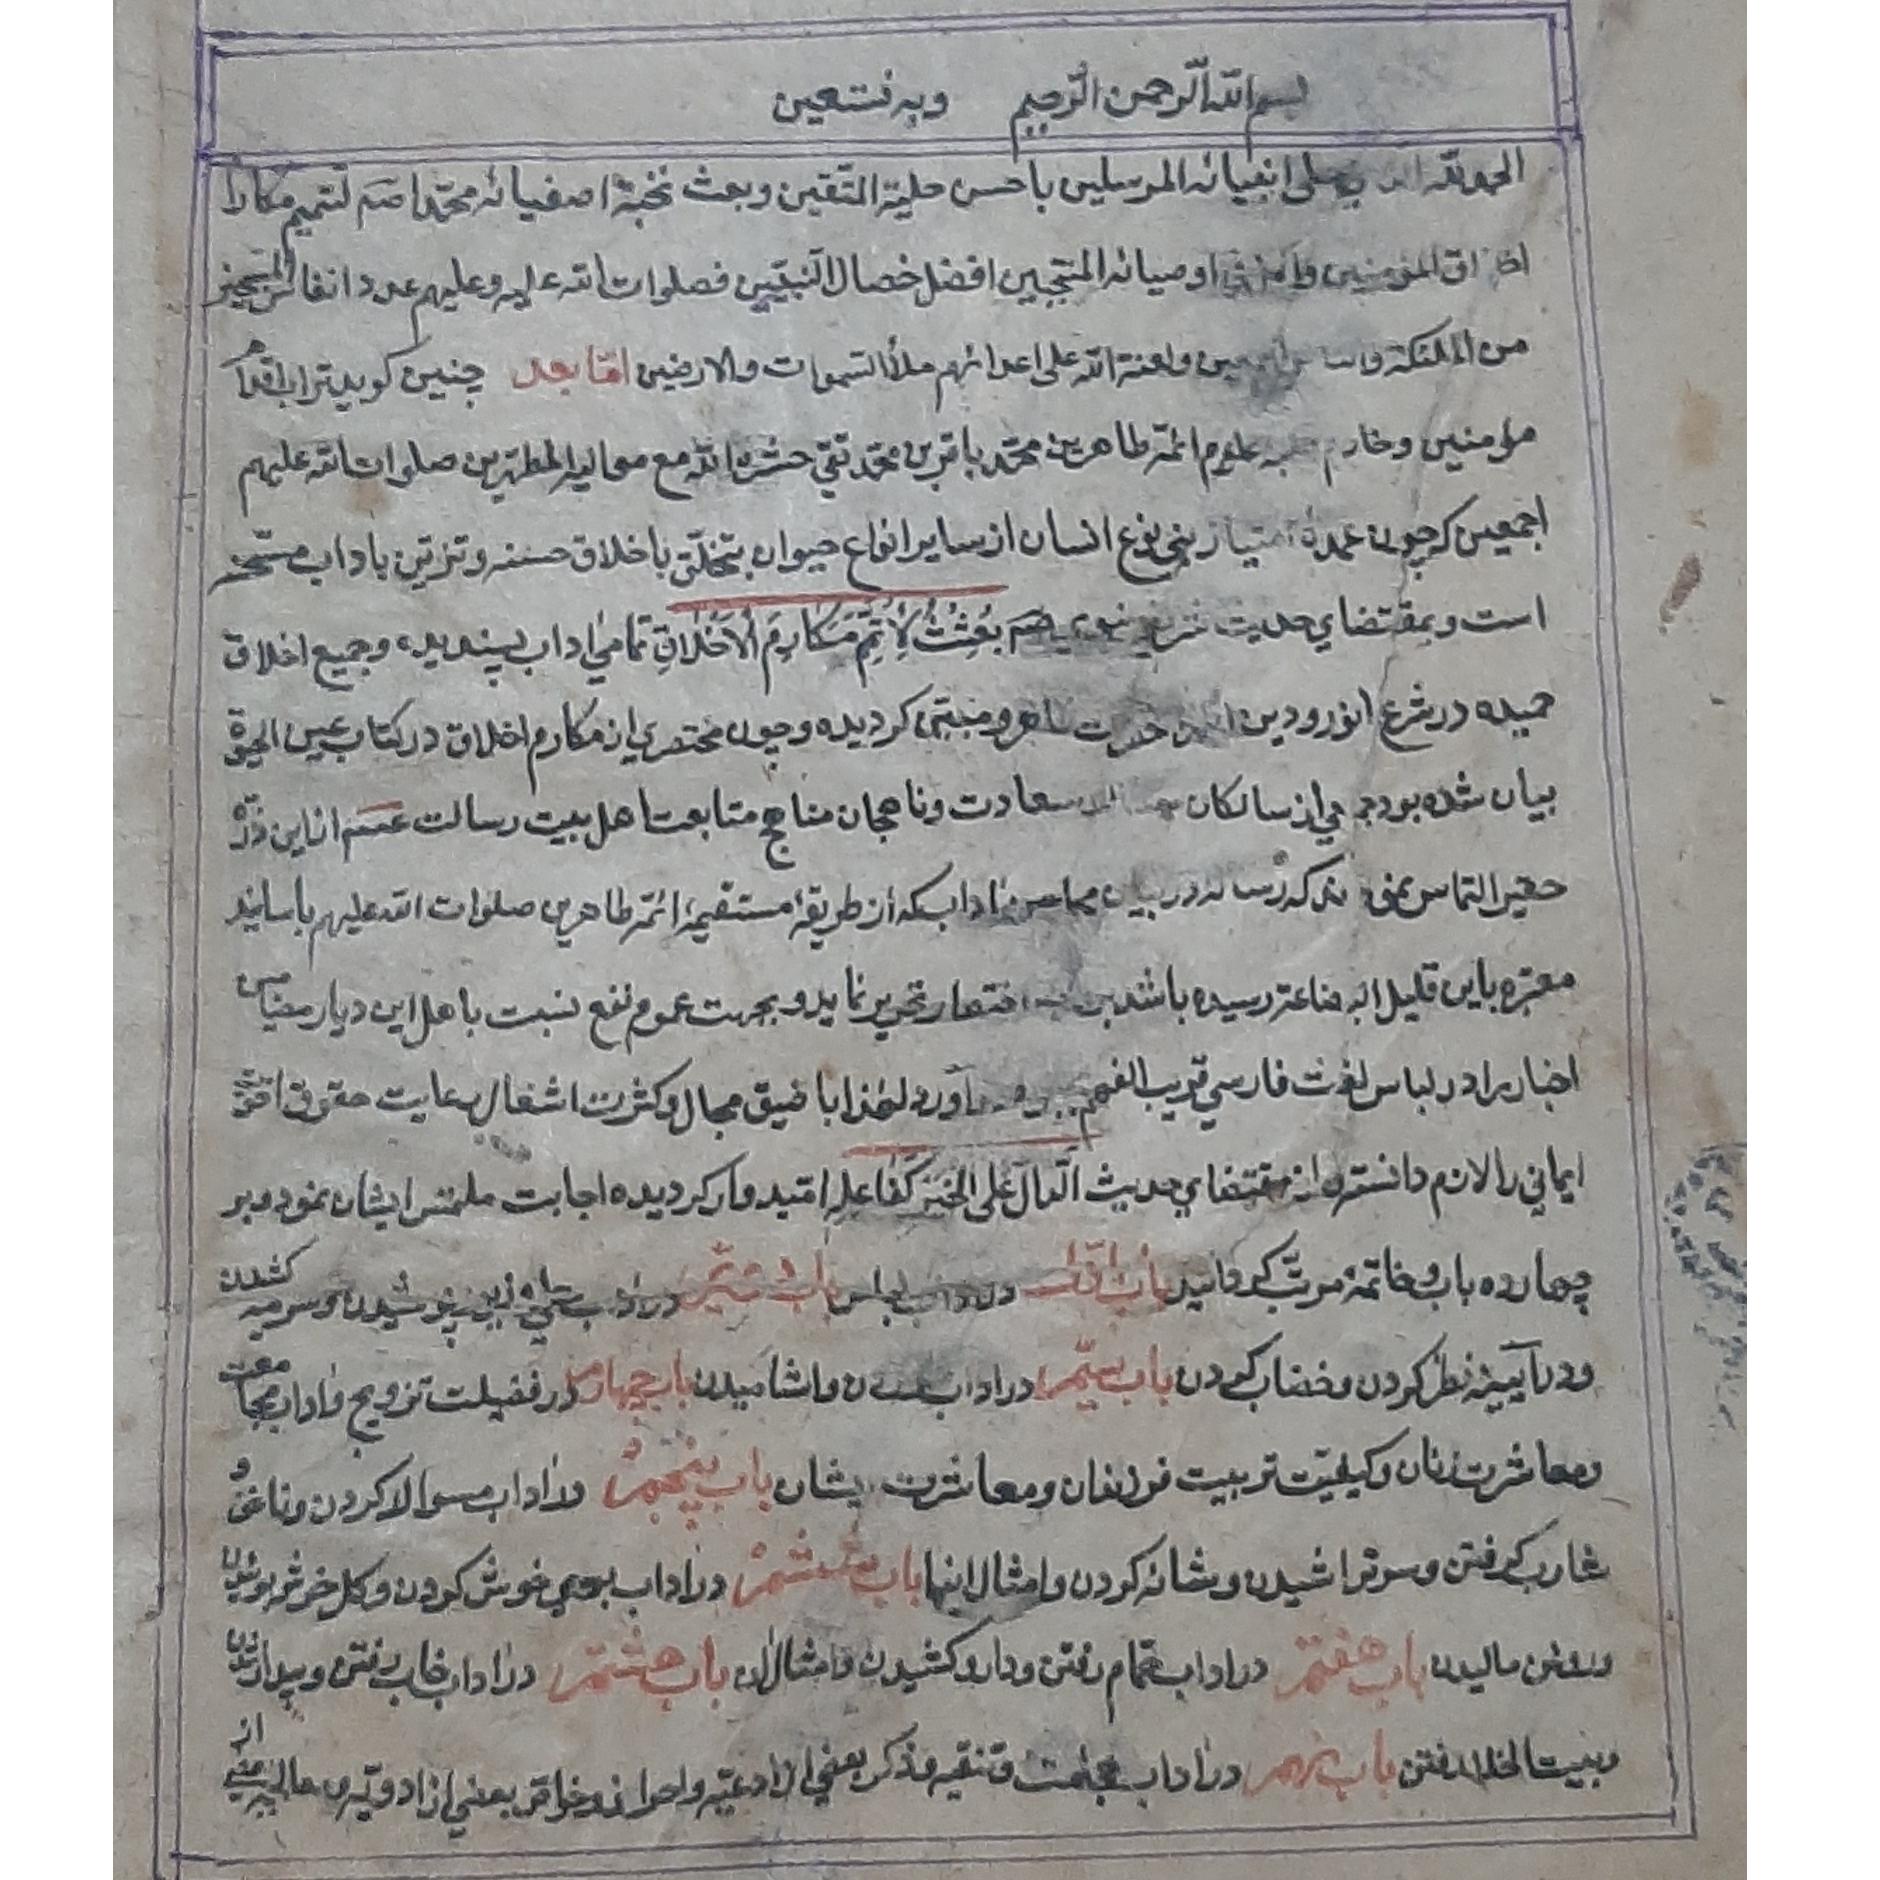 بسم الله الرحمن الرحیم وبه نستعین
الحمد لله حلی انبیائه المرسلین باحسن حلیة المتقین وبعث نخبة اصفیائه محمدا صم لتتمیم مکارم
اخلاق المؤمنین اوصیائه المنتجبین افضل خصال النبیین فصلوات الله علیه وعلیهم عدد انفاس المسبحین
من الملئکة ولعنة الله علی اعدائهم ملأ السموات والارضین اما بعد چنین کوید تراب اقدام
مؤمنین وخادم علوم ائمه طاهرین محمد باقر بن محمد تقی حشره الله مع موالیه المطهرین صلوات الله علیهم
اجمعین که چون عمده امتیاز بنی نوع انسان از سایر انواع حیوان بتخلق باخلاق حسنه وتزیّن باداب مستحسنه
است وبمقتضای حدیث شریف نبوی صم بُعِثتُ لِاُتَمِّمَ مَکَارِمَ الاَخلَاقِ تمامی اداب پسندیده وجمیع اخلاق
حمیده در شرع انور ودین ظاهر ومبین کردیده وچون مختصری از مکارم اخلاق در کتاب عین الحیوة
بیان شده بود جمعی از سالکان سعادت وناهجان مناهج متابعت اهل بیت رسالت عسم از این ذرّه
حقیر التماس نمودند که رساله در بیان محاسن اداب که از طریقهٔ مستقیمهٔ ائمه طاهرین صلوات الله علیهم باسانید
معتبره باین قلیل البضاعة رسیده باشد اختصار تحریر نماید وبجهت عموم نفع نسبت باهل این دیار مضامین
اخبار را در لباس لغت فارسی قریب الفهم آورد لهذا با ضیق مجال وکثرت اشغال رعایت حقوق اخوّت
ایمانی را لازم دانسته واز مقتضای حدیث اَلدّالُ عَلَی الخَیرِ کَفَاعِلِه امّیدوار کردیده اجابت ملتمس ایشان نمود وبر
چهارده باب وخاتمه مرتّب کردانید باب اوّل در اداب لباس باب دویّم در اداب حلی وزیور پوشیدن وسرمه کشیدن
ودر آیینه نظر کردن وخضاب کردن باب سیّم در اداب خوردن واشامیدن باب چهارم در فضیلت تزویج واداب مجامعت
ومعاشرت زنان وکیفیّت تربیت فرزندان ومعاشرت ایشان باب پنجم در اداب مسواک کردن وناخن و
شارب کرفتن وسر تراشیدن وشانه کردن وامثال اینها باب ششم در اداب بوی خوش کردن وکل خوشبوئیدن
وروغن مالیدن باب هفتم در اداب حمّام رفتن ودارو کشیدن وامثال ان باب هشتم در اداب خواب رفتن وبیدار شدن
وبیت الخلا رفتن باب نهم در اداب حجامت وتنقیه وذکر بعضی از ادعیه واحراز وخواص بعضی از ادویه ومعالجه بعضی از